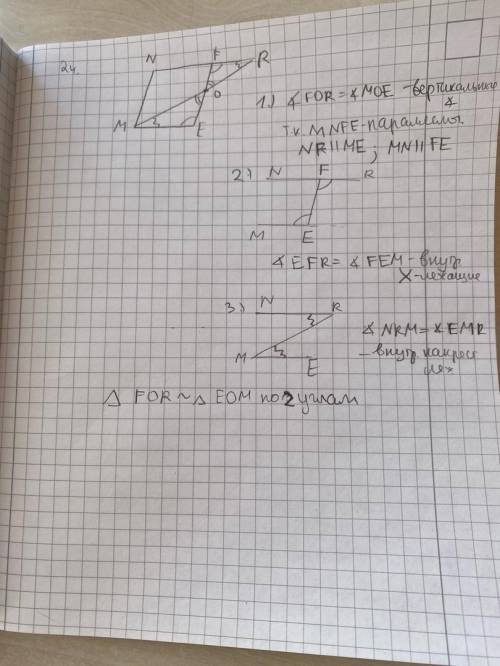 24.
N F R
O
M E
1.) ∢ FOR = ∢ MOE - вертикальные ∢
т.к. MNFE - параллелы
NR || ME ; MN || FE
2) N F R
M E
∢ EFR = ∢ FEM - внутр
X - лежащие
3) N R
M E
∢ NRM = ∢ EMR
- внутр накрест
леж
△ FOR ~ △ EOM по 2 углам